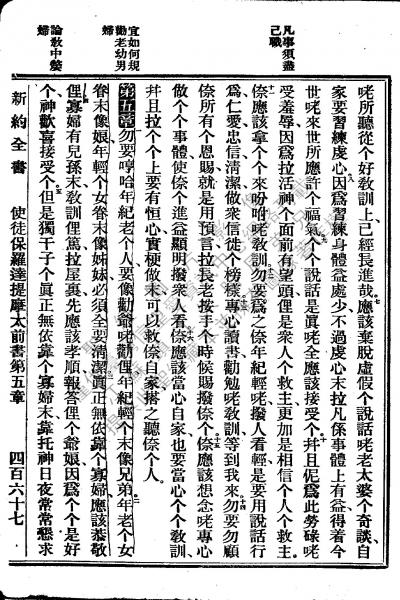 凡事須盡己職
咾所聽從个好敎訓上已經長進哉應該棄脫虛假个說話咾老太婆个奇談自
家要習練虔心因爲習練身體益處少不過虔心末拉凡係事體上有益得着今
世咾來世所應許个福氣个个說話是眞咾全應該接受个幷且伲爲此勞碌咾
受羞辱因爲拉活神个面前有望頭俚是衆人个救主更加是相信个人个救主。
儂應該拿个个來吩咐咾敎訓勿要爲之儂年紀輕咾撥人看輕是要用說話行
爲仁愛忠信淸潔做衆信徒个榜樣專心讀書勸勉咾敎訓等到我來勿要勿顧
儂所有个恩賜就是用預言拉長老按手个時候賜撥儂个儂應該想念咾專心
做个个事體使儂个進益顯明撥衆人看儂應該當心自家也要當心个个敎訓
幷且拉个个上要有恒心實梗做末可以救儂自家搭之聽儂个人。
宜如何規勸老幼男婦
第五章 勿要哼哈年紀老个人要像勸爺咾勸俚年紀輕个末像兄弟年老个女
眷末像娘年輕个女眷末像姊妹必須全要淸潔眞正無依靠个寡婦應該恭敬
論敎中嫠婦
俚寡婦有兒孫末敎訓俚篤拉屋裏先應該孝順報答俚个爺娘因爲个个是好
个神歡喜接受个但是獨干子个眞正無依靠个寡婦末靠托神日夜常常懇求
新約全書 使徒保羅達提摩太前書第五章 四百六十七